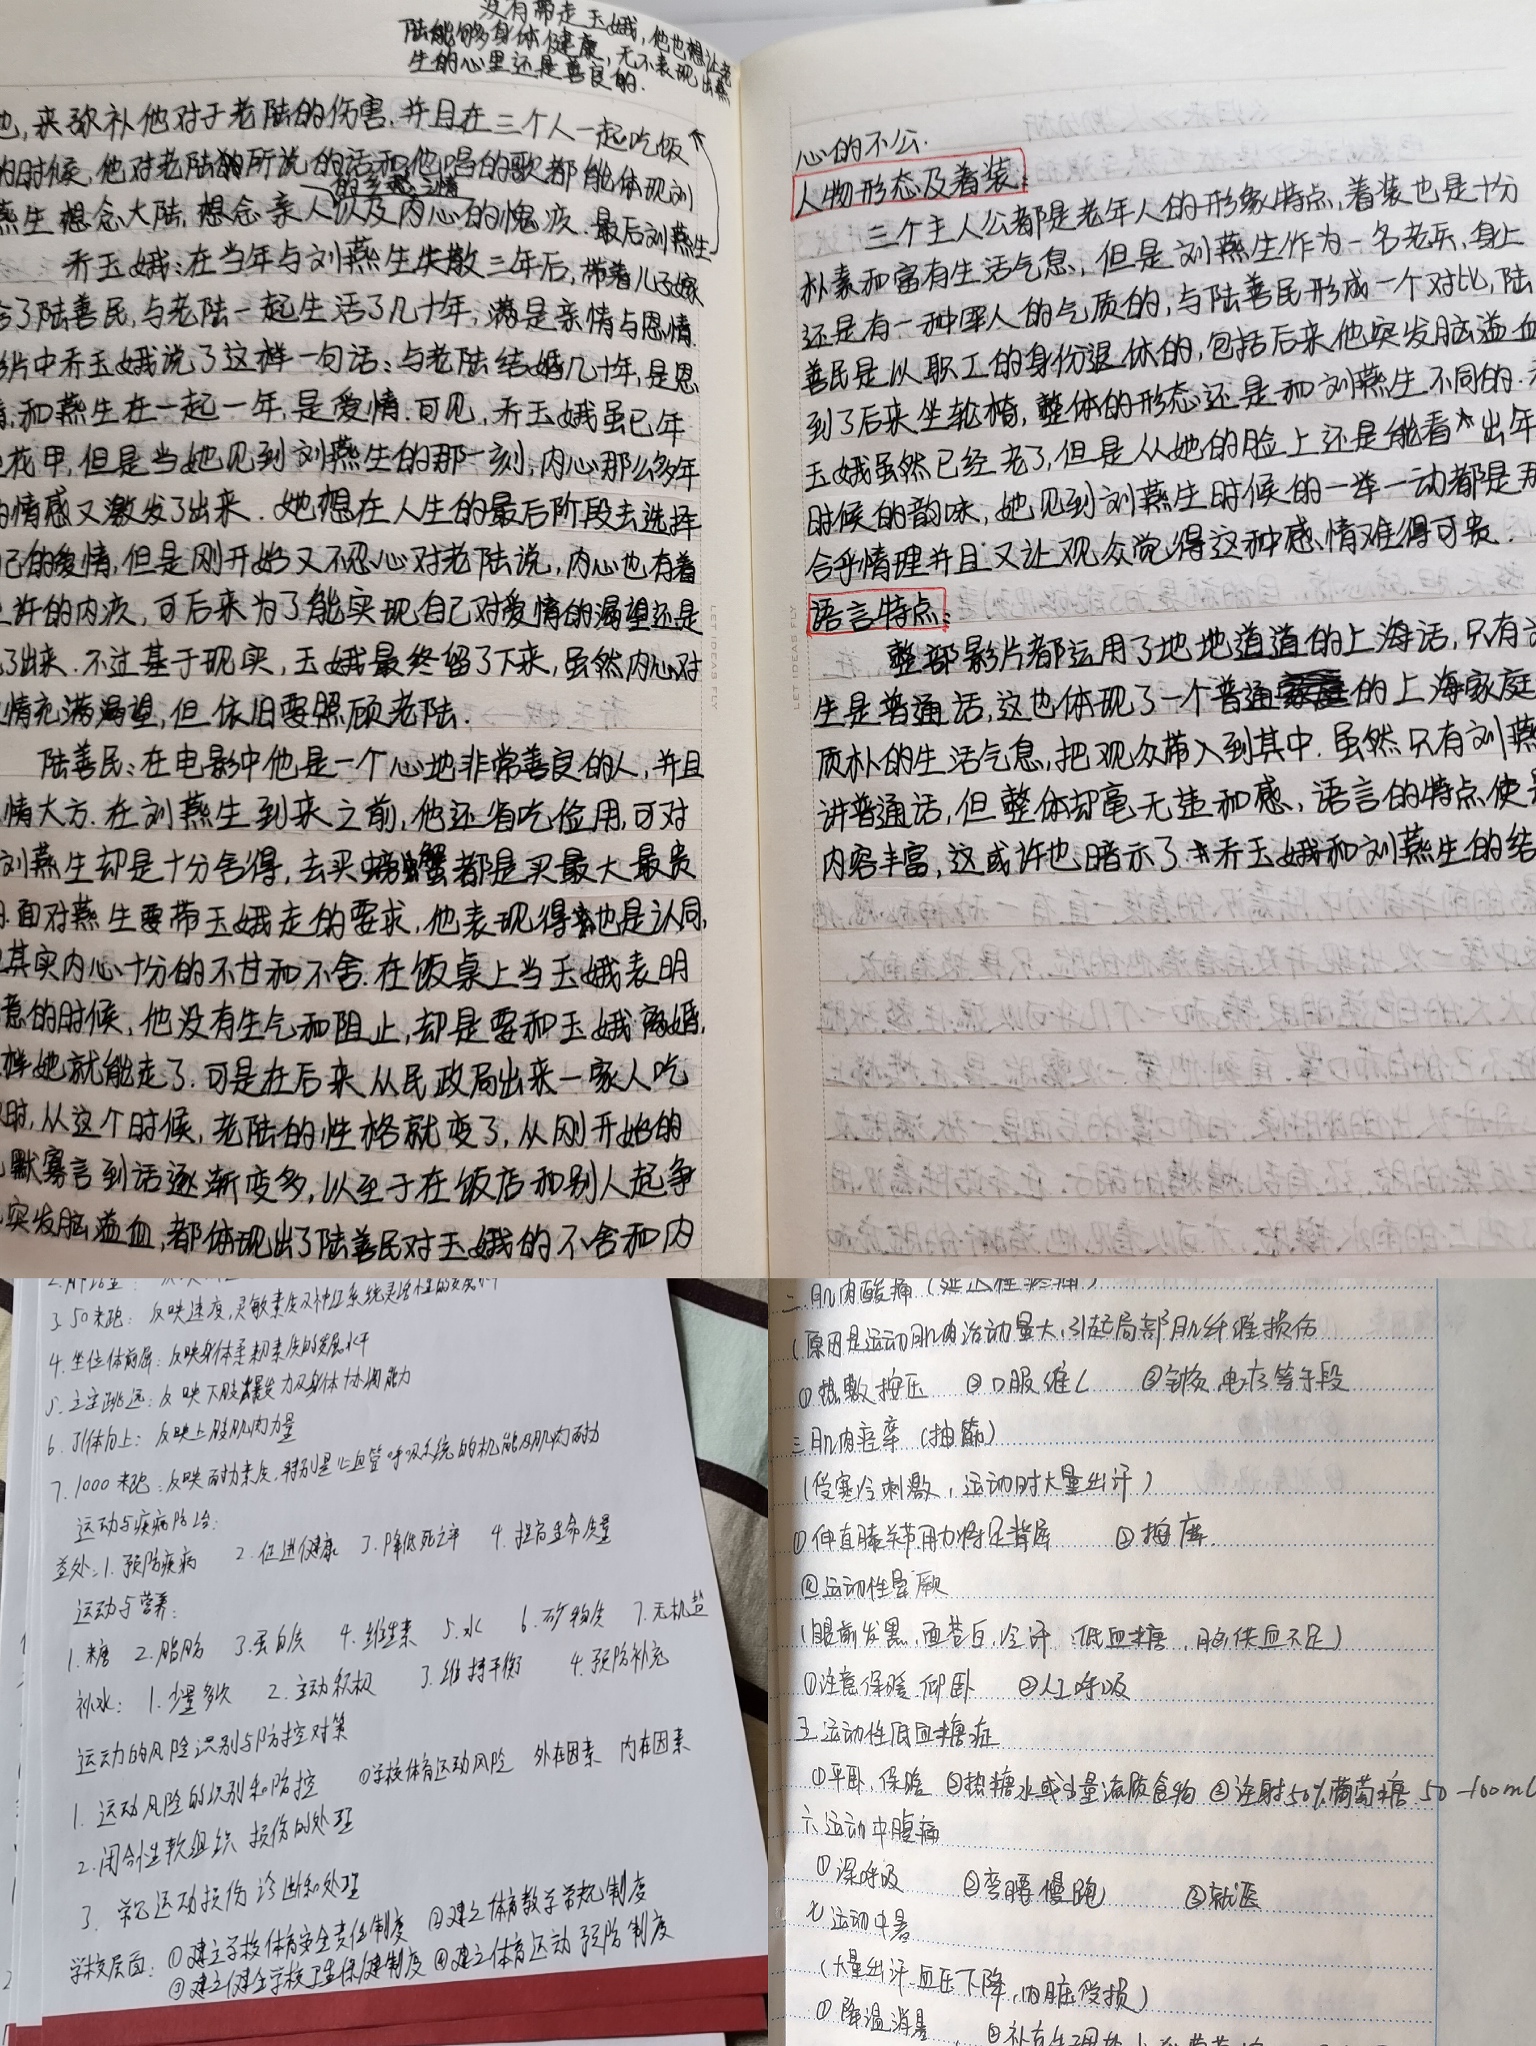 没有带走玉娥,他也想让老
陆能够身体健康,无不表现出燕
生的心里还是善良的.
他,来弥补他对于老陆的伤害.并且在三个人一起吃饭
的时候,他对老陆所说的话和他唱的歌都能体现刘
的乡愁之情
燕生想念大陆,想念亲人以及内心的愧疚.最后刘燕生
乔玉娥:在当年与刘燕生失散二年后,带着儿子嫁
给了陆善民,与老陆一起生活了几十年,满是亲情与恩情.
影片中乔玉娥说了这样一句话:与老陆结婚几十年,是恩
情,和燕生在一起一年,是爱情.可见,乔玉娥虽已年
花甲,但是当她见到刘燕生的那一刻,内心那么多年
的情感又激发了出来.她想在人生的最后阶段去选择
己的爱情,但是刚开始又不忍心对老陆说,内心也有着
许的内疚,可后来为了能实现自己对爱情的渴望还是
了出来.不过基于现实,玉娥最终留了下来,虽然内心对
情充满渴望,但依旧要照顾老陆.
陆善民:在电影中他是一个心地非常善良的人,并且
情大方.在刘燕生到来之前,他还省吃俭用,可对
刘燕生却是十分舍得,去买螃蟹都是买最大最贵
的.面对燕生要带玉娥走的要求,他表现得也是认同,
其实内心十分的不甘和不舍.在饭桌上当玉娥表明
意的时候,他没有生气和阻止,却是要和玉娥离婚,
样她就能走了.可是在后来从民政局出来一家人吃
时,从这个时候,老陆的性格就变了,从刚开始的
默寡言到话逐渐变多,以至于在饭店和别人起争
突发脑溢血,都体现出了陆善民对玉娥的不舍和内
LET IDEAS FLY
心的不公.
人物形态及着装:
三个主人公都是老年人的形象特点,着装也是十分
朴素和富有生活气息,但是刘燕生作为一名老兵,身上
还是有一种军人的气质的,与陆善民形成一个对比,陆
善民是以职工的身份退休的,包括后来他突发脑溢血
到了后来坐轮椅,整体的形态还是和刘燕生不同的.
玉娥虽然已经老了,但是从她的脸上还是能看出年
时候的韵味,她见到刘燕生时候的一举一动都是那
合乎情理并且又让观众觉得这种感情难得可贵.
语言特点:
整部影片都运用了地地道道的上海话,只有
生是普通话,这也体现了一个普通的上海家庭
质朴的生活气息,把观众带入到其中.虽然只有刘燕
讲普通话,但整体却毫无违和感,语言的特点使
内容丰富,这或许也暗示了乔玉娥和刘燕生的结
LET IDEAS FLY
3.50米跑:反映速度,灵敏素质及神经系统灵活性的发展水平
4.坐位体前屈:反映身体柔韧素质的发展水平
5.立定跳远:反映下肢爆发力及身体协调能力
6.引体向上:反映上肢肌肉力量
7.1000米跑:反映耐力素质,特别是心血管呼吸系统的机能及肌肉耐力
运动与疾病防治:
益处:1.预防疾病 2.促进健康 3.降低死亡率 4.提高生命质量
运动与营养:
1.糖 2.脂肪 3.蛋白质 4.维生素 5.水 6.矿物质 7.无机盐
补水:1.少量多次 2.主动积极 3.维持平衡 4.预防补充
运动的风险识别与防控对策
1.运动风险的识别和防控 ①学校体育运动风险 外在因素 内在因素
2.闭合性软组织损伤的处理
3.常见运动损伤诊断和处理
学校层面:①建立学校体育安全责任制度 ②建立体育教学常规制度
③建立健全学校卫生保健制度 ④建立体育运动预防制度
二.肌肉酸痛(延迟性疼痛)
(原因是运动肌肉活动量大,引起局部肌纤维损伤
①热敷按压 ②口服维C ③针灸,电疗等手段
三.肌肉痉挛(抽筋)
(受寒冷刺激,运动时大量出汗)
①伸直膝关节用力将足背屈 ②按摩.
四运动性晕厥
(眼前发黑,面苍白,冷汗 低血糖,脑供血不足)
①注意保暖,仰卧 ②人工呼吸
五.运动性低血糖症
①平卧,保暖 ②热糖水或少量流质食物 ③注射50%葡萄糖50-100mL
六.运动中腹痛
①深呼吸 ②弯腰慢跑 ③就医
七.运动中暑
(大量出汗,血压下降,内脏受损)
①降温消暑